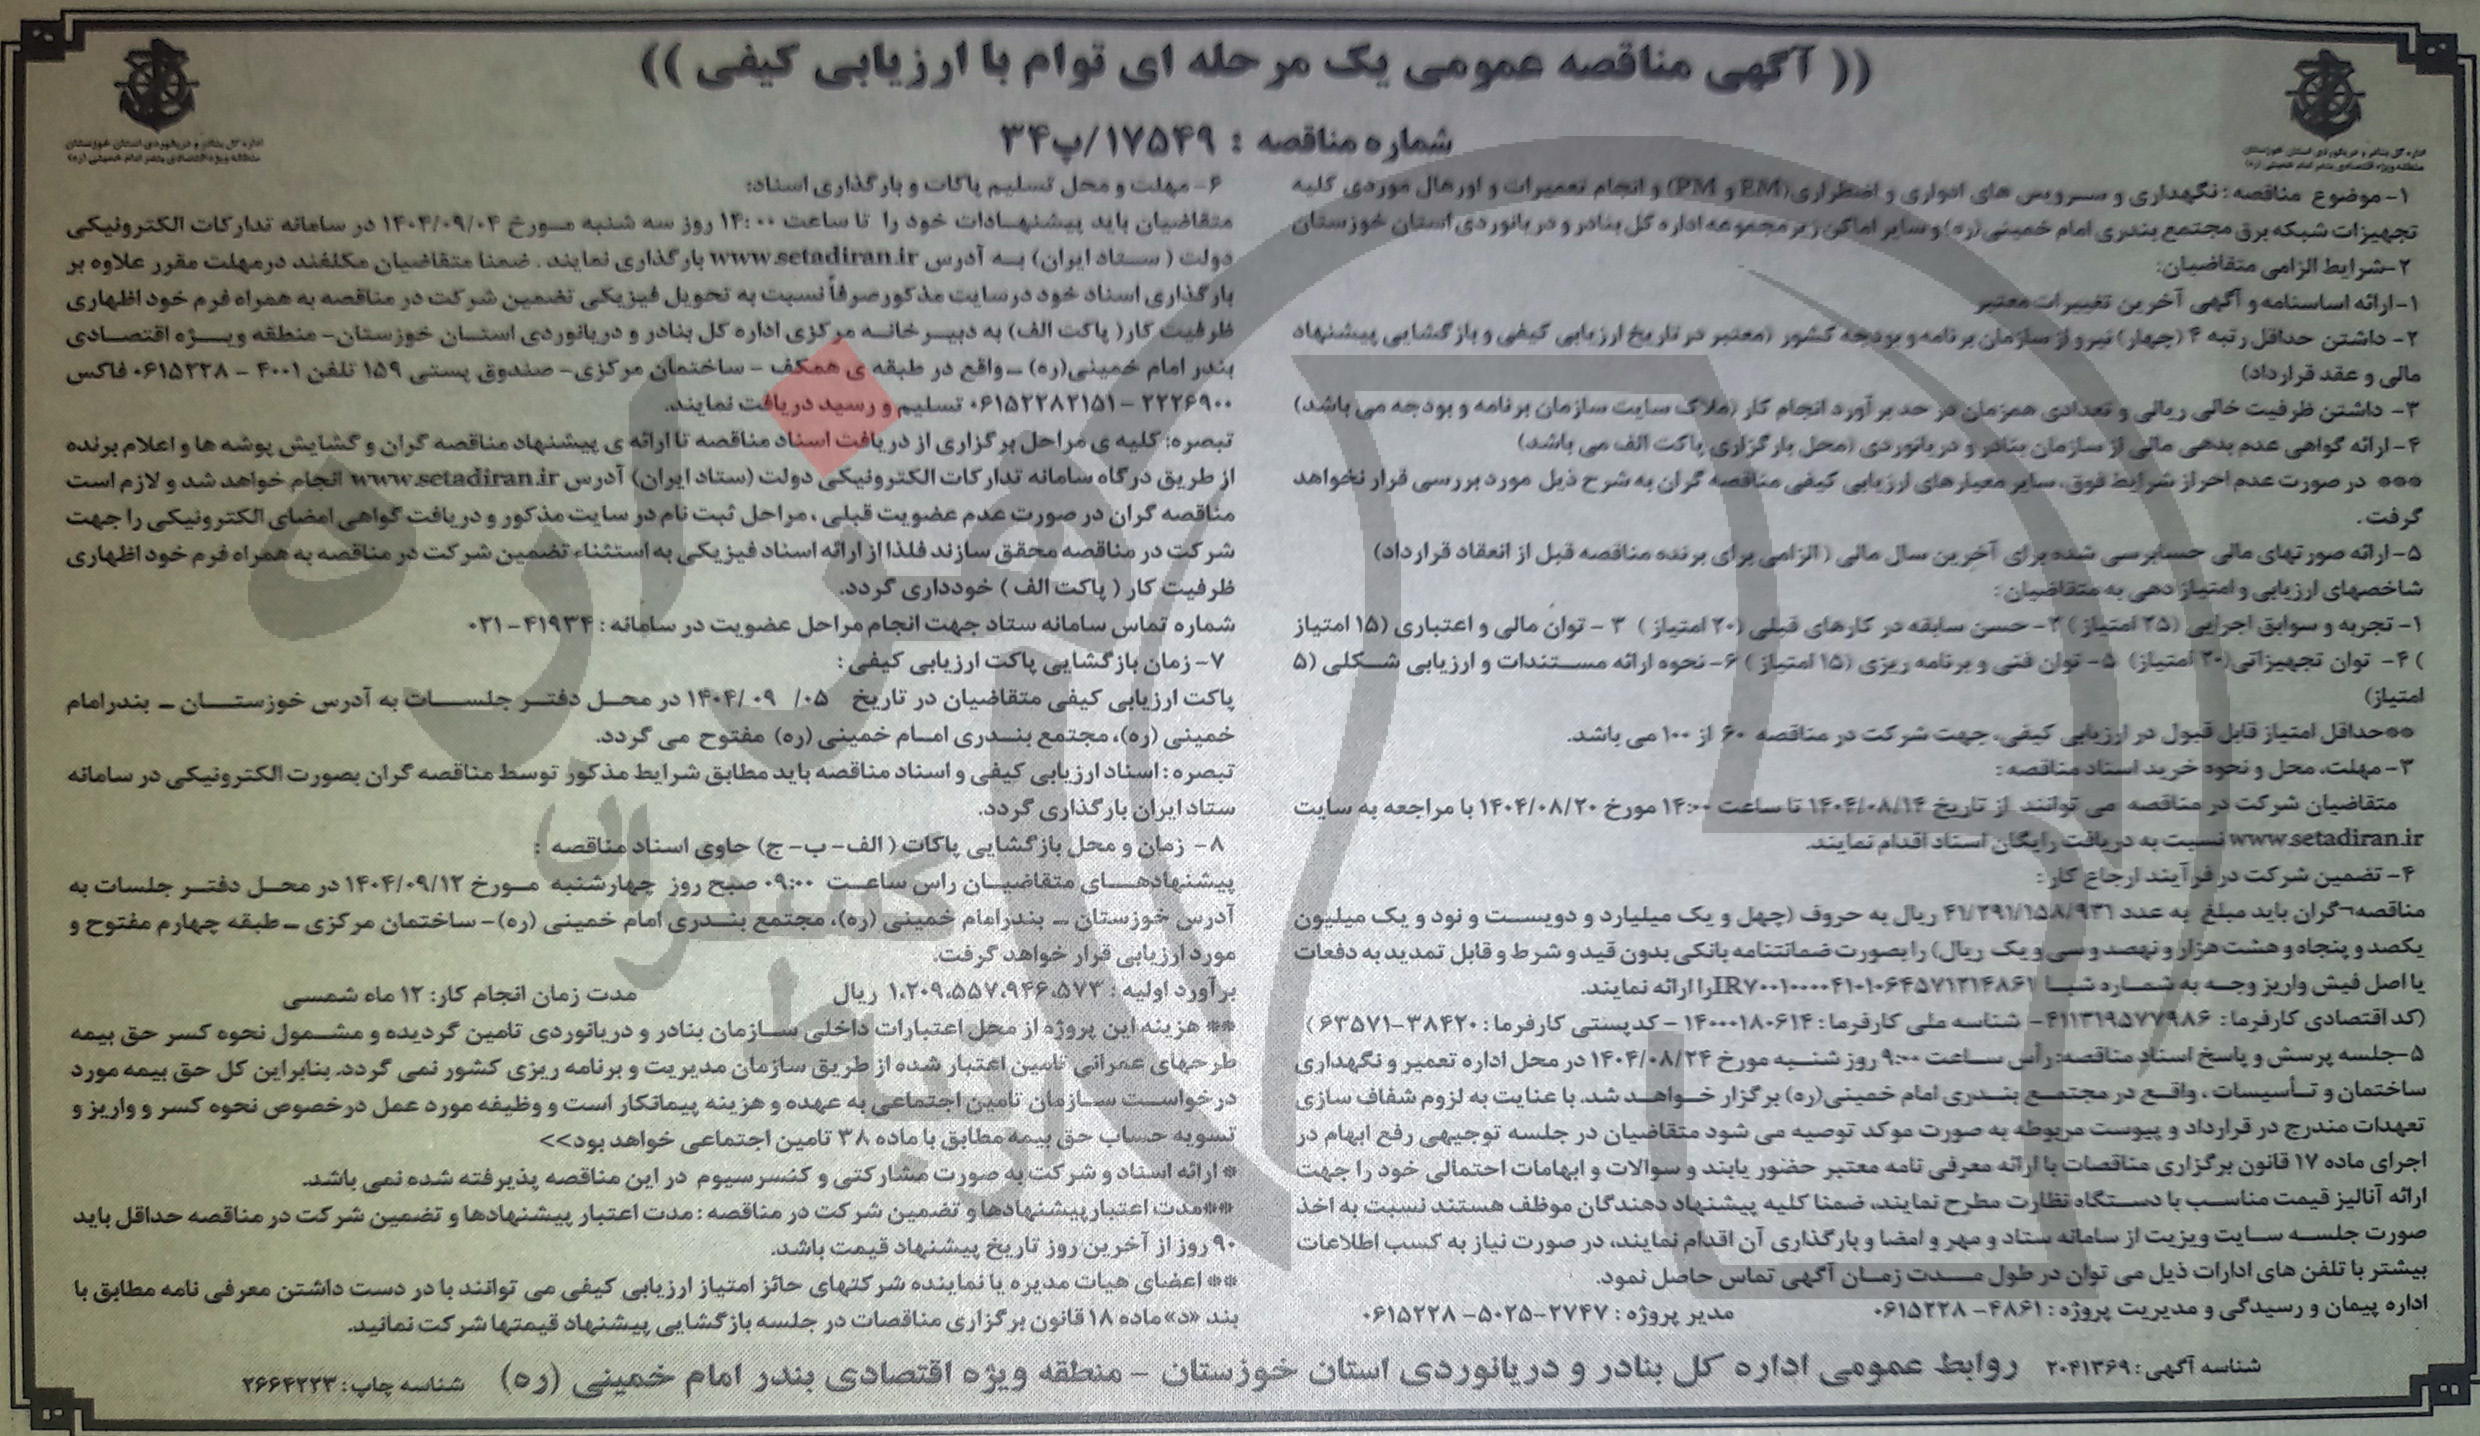 (( آگهی مناقصه عمومی یک مرحله ای توام با ارزیابی کیفی ))
شماره مناقصه : ۱۷۵۴۹/پ۳۴
اداره کل بنادر و دریانوردی استان خوزستان
منطقه ویژه اقتصادی بندر امام خمینی (ره)
اداره کل بنادر و دریانوردی استان خوزستان
منطقه ویژه اقتصادی بندر امام خمینی (ره)
۱-موضوع مناقصه : نگهداری و سرویس های ادواری و اضطراری(EM و PM) و انجام تعمیرات و اورهال موردی کلیه
تجهیزات شبکه برق مجتمع بندری امام خمینی(ره) و سایر اماکن زیر مجموعه اداره کل بنادر و دریانوردی استان خوزستان
۲-شرایط الزامی متقاضیان:
۱-ارائه اساسنامه و آگهی آخرین تغییرات معتبر
۲- داشتن حداقل رتبه ۴ (چهار) نیرو از سازمان برنامه و بودجه کشور (معتبر در تاریخ ارزیابی کیفی و بازگشایی پیشنهاد
مالی و عقد قرارداد)
۳- داشتن ظرفیت خالی ریالی و تعدادی همزمان در حد برآورد انجام کار (ملاک سایت سازمان برنامه و بودجه می باشد)
۴-ارائه گواهی عدم بدهی مالی از سازمان بنادر و دریانوردی (محل بارگزاری پاکت الف می باشد)
*** در صورت عدم احراز شرایط فوق، سایر معیارهای ارزیابی کیفی مناقصه گران به شرح ذیل مورد بررسی قرار نخواهد
گرفت.
۵-ارائه صورتهای مالی حسابرسی شده برای آخرین سال مالی ( الزامی برای برنده مناقصه قبل از انعقاد قرارداد)
شاخصهای ارزیابی و امتیاز دهی به متقاضیان :
۱- تجربه و سوابق اجرایی (۲۵ امتیاز ) ۲- حسن سابقه در کارهای قبلی (۲۰ امتیاز ) ۳ - توان مالی و اعتباری (۱۵ امتیاز
) ۴- توان تجهیزاتی(۲۰ امتیاز) ۵- توان فنی و برنامه ریزی (۱۵ امتیاز ) ۶- نحوه ارائه مستندات و ارزیابی شکلی (۵
امتیاز)
**حداقل امتیاز قابل قبول در ارزیابی کیفی، جهت شرکت در مناقصه ۶۰ از ۱۰۰ می باشد.
۳- مهلت، محل و نحوه خرید اسناد مناقصه :
متقاضیان شرکت در مناقصه می توانند از تاریخ ۱۴۰۴/۰۸/۱۴ تا ساعت ۱۴:۰۰ مورخ ۱۴۰۴/۰۸/۲۰ با مراجعه به سایت
www.setadiran.ir نسبت به دریافت رایگان اسناد اقدام نمایند.
۴- تضمین شرکت در فرآیند ارجاع کار :
مناقصه¬گران باید مبلغ به عدد ۴۱/۲۹۱/۱۵۸/۹۳۱ ریال به حروف (چهل و یک میلیارد و دویست و نود و یک میلیون
یکصد و پنجاه و هشت هزار و نهصد و سی و یک ریال) را بصورت ضمانتنامه بانکی بدون قید و شرط و قابل تمدید به دفعات
یا اصل فیش واریز وجه به شماره شبا را ارائه نمایند.
(کد اقتصادی کارفرما: ۴۱۱۳۱۹۵۷۷۹۸۶ - شناسه ملی کارفرما: ۱۴۰۰۰۱۸۰۶۱۴ - کدپستی کارفرما: ۳۸۴۲۰-۶۳۵۷۱ )
۵-جلسه پرسش و پاسخ اسناد مناقصه: رأس ساعت ۹:۰۰ روز شنبه مورخ ۱۴۰۴/۰۸/۲۴ در محل اداره تعمیر و نگهداری
ساختمان و تأسیسات ، واقع در مجتمع بندری امام خمینی(ره) برگزار خواهد شد. با عنایت به لزوم شفاف سازی
تعهدات مندرج در قرارداد و پیوست مربوطه به صورت موکد توصیه می شود متقاضیان در جلسه توجیهی رفع ابهام در
اجرای ماده ۱۷ قانون برگزاری مناقصات با ارائه معرفی نامه معتبر حضور یابند و سوالات و ابهامات احتمالی خود را جهت
ارائه آنالیز قیمت مناسب با دستگاه نظارت مطرح نمایند، ضمنا کلیه پیشنهاد دهندگان موظف هستند نسبت به اخذ
صورت جلسه سایت ویزیت از سامانه ستاد و مهر و امضا و بارگذاری آن اقدام نمایند، در صورت نیاز به کسب اطلاعات
بیشتر با تلفن های ادارات ذیل می توان در طول مدت زمان آگهی تماس حاصل نمود.
اداره پیمان و رسیدگی و مدیریت پروژه : ۴۸۶۱- ۰۶۱۵۲۲۸ مدیر پروژه : ۲۷۴۷-۵۰۲۵- ۰۶۱۵۲۲۸
۶- مهلت و محل تسلیم پاکات و بارگذاری اسناد:
متقاضیان باید پیشنهادات خود را تا ساعت ۱۴:۰۰ روز سه شنبه مورخ ۱۴۰۴/۰۹/۰۴ در سامانه تدارکات الکترونیکی
دولت ( ستاد ایران) به آدرس www.setadiran.ir بارگذاری نمایند . ضمنا متقاضیان مکلفند در مهلت مقرر علاوه بر
بارگذاری اسناد خود در سایت مذکور صرفاً نسبت به تحویل فیزیکی تضمین شرکت در مناقصه به همراه فرم خود اظهاری
ظرفیت کار( پاکت الف) به دبیرخانه مرکزی اداره کل بنادر و دریانوردی استان خوزستان- منطقه ویژه اقتصادی
بندر امام خمینی(ره) ـ واقع در طبقه ی همکف - ساختمان مرکزی- صندوق پستی ۱۵۹ تلفن ۴۰۰۱ - ۰۶۱۵۲۲۸ فاکس
۲۲۲۶۹۰۰ - ۰۶۱۵۲۲۸۲۱۵۱ تسلیم و رسید دریافت نمایند.
تبصره: کلیه ی مراحل برگزاری از دریافت اسناد مناقصه تا ارائه ی پیشنهاد مناقصه گران و گشایش پوشه ها و اعلام برنده
از طریق درگاه سامانه تدارکات الکترونیکی دولت (ستاد ایران) آدرس www.setadiran.ir انجام خواهد شد و لازم است
مناقصه گران در صورت عدم عضویت قبلی ، مراحل ثبت نام در سایت مذکور و دریافت گواهی امضای الکترونیکی را جهت
شرکت در مناقصه محقق سازند فلذا از ارائه اسناد فیزیکی به استثناء تضمین شرکت در مناقصه به همراه فرم خود اظهاری
ظرفیت کار ( پاکت الف ) خودداری گردد.
شماره تماس سامانه ستاد جهت انجام مراحل عضویت در سامانه : ۴۱۹۳۴-۰۲۱
۷- زمان بازگشایی پاکت ارزیابی کیفی :
پاکت ارزیابی کیفی متقاضیان در تاریخ ۰۵/ ۰۹ /۱۴۰۴ در محل دفتر جلسات به آدرس خوزستان ـ بندرامام
خمینی (ره)، مجتمع بندری امام خمینی (ره) مفتوح می گردد.
تبصره : اسناد ارزیابی کیفی و اسناد مناقصه باید مطابق شرایط مذکور توسط مناقصه گران بصورت الکترونیکی در سامانه
ستاد ایران بارگذاری گردد.
۸- زمان و محل بازگشایی پاکات ( الف- ب- ج) حاوی اسناد مناقصه :
پیشنهادهای متقاضیان راس ساعت ۰۹:۰۰ صبح روز چهارشنبه مورخ ۱۴۰۴/۰۹/۱۲ در محل دفتر جلسات به
آدرس خوزستان ـ بندرامام خمینی (ره)، مجتمع بندری امام خمینی (ره)- ساختمان مرکزی ـ طبقه چهارم مفتوح و
مورد ارزیابی قرار خواهد گرفت.
برآورد اولیه : ۱،۲۰۹،۵۵۷،۹۴۶،۵۷۳ ریال مدت زمان انجام کار: ۱۲ ماه شمسی
** هزینه این پروژه از محل اعتبارات داخلی سازمان بنادر و دریانوردی تامین گردیده و مشمول نحوه کسر حق بیمه
طرحهای عمرانی تامین اعتبار شده از طریق سازمان مدیریت و برنامه ریزی کشور نمی گردد. بنابراین کل حق بیمه مورد
درخواست سازمان تامین اجتماعی به عهده و هزینه پیمانکار است و وظیفه مورد عمل درخصوص نحوه کسر و واریز و
تسویه حساب حق بیمه مطابق با ماده ۳۸ تامین اجتماعی خواهد بود>>
* ارائه اسناد و شرکت به صورت مشارکتی و کنسرسیوم در این مناقصه پذیرفته شده نمی باشد.
**مدت اعتبار پیشنهادها و تضمین شرکت در مناقصه : مدت اعتبار پیشنهادها و تضمین شرکت در مناقصه حداقل باید
۹۰ روز از آخرین روز تاریخ پیشنهاد قیمت باشد.
** اعضای هیات مدیره یا نماینده شرکتهای حائز امتیاز ارزیابی کیفی می توانند با در دست داشتن معرفی نامه مطابق با
بند «د» ماده ۱۸ قانون برگزاری مناقصات در جلسه بازگشایی پیشنهاد قیمتها شرکت نمائید.
شناسه آگهی : ۲۰۴۱۳۶۹ روابط عمومی اداره کل بنادر و دریانوردی استان خوزستان - منطقه ویژه اقتصادی بندر امام خمینی (ره) شناسه چاپ : ۲۶۶۴۲۲۳